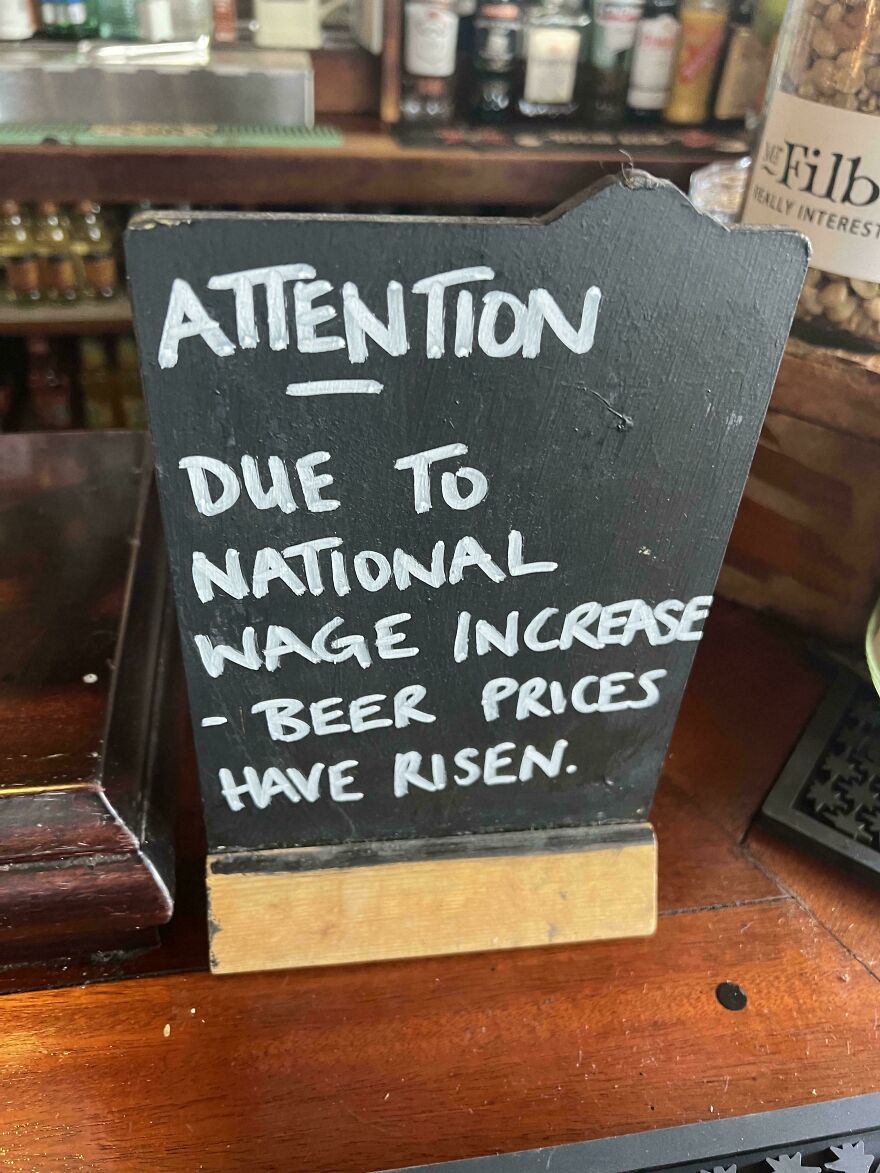 ATTENTION
DUE TO
NATIONAL
WAGE INCREASE
- BEER PRICES
HAVE RISEN.
MR Filb
REALLY INTEREST